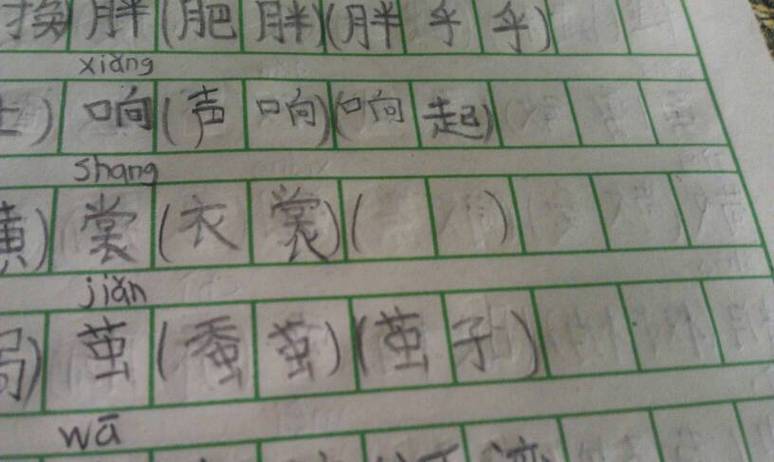 换胖(肥胖)(胖乎乎)
xiǎng
响(声响)(响起)
shang
裳(衣裳)( )
jiǎn
茧(蚕茧)(茧子)
wā